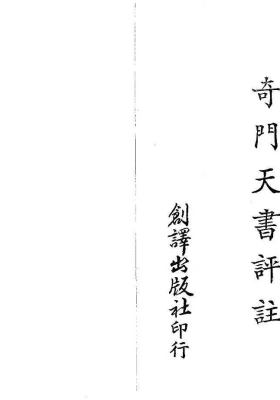 奇門天書評註
創譯出版社印行